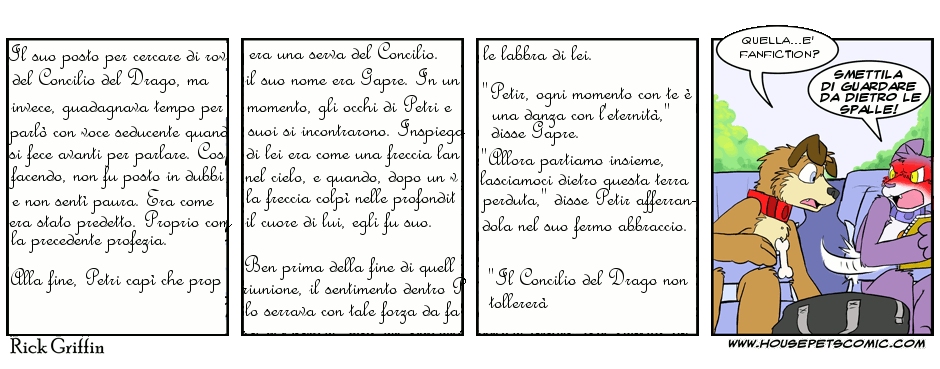 Il suo posto per cercare di rov
del Concilio del Drago, ma
invece, guadagnava tempo per
parlò con voce seducente quand
si fece avanti per parlare. Cos
facendo, non fu posto in dubbi
e non sentì paura. Era come
era stato predetto. Proprio com
la precedente profezia.
Alla fine, Petri capì che prop
era una serva del Concilio.
il suo nome era Gapre. In un
momento, gli occhi di Petri e
suoi si incontrarono. Inspiega
di lei era come una freccia lan
nel cielo, e quando, dopo un v
la freccia colpì nelle profondit
il cuore di lui, egli fu suo.
Ben prima della fine di quell
riunione, il sentimento dentro P
lo serrava con tale forza da fa
le labbra di lei.
"Petir, ogni momento con te è
una danza con l'eternità,"
disse Gapre.
"Allora partiamo insieme,
lasciamoci dietro questa terra
perduta," disse Petir afferran-
dola nel suo fermo abbraccio.
"Il Concilio del Drago non
tollererà
QUELLA...E'
FANFICTION?
SMETTILA
DI GUARDARE
DA DIETRO LE
SPALLE!
Rick Griffin
WWW.HOUSEPETSCOMIC.COM